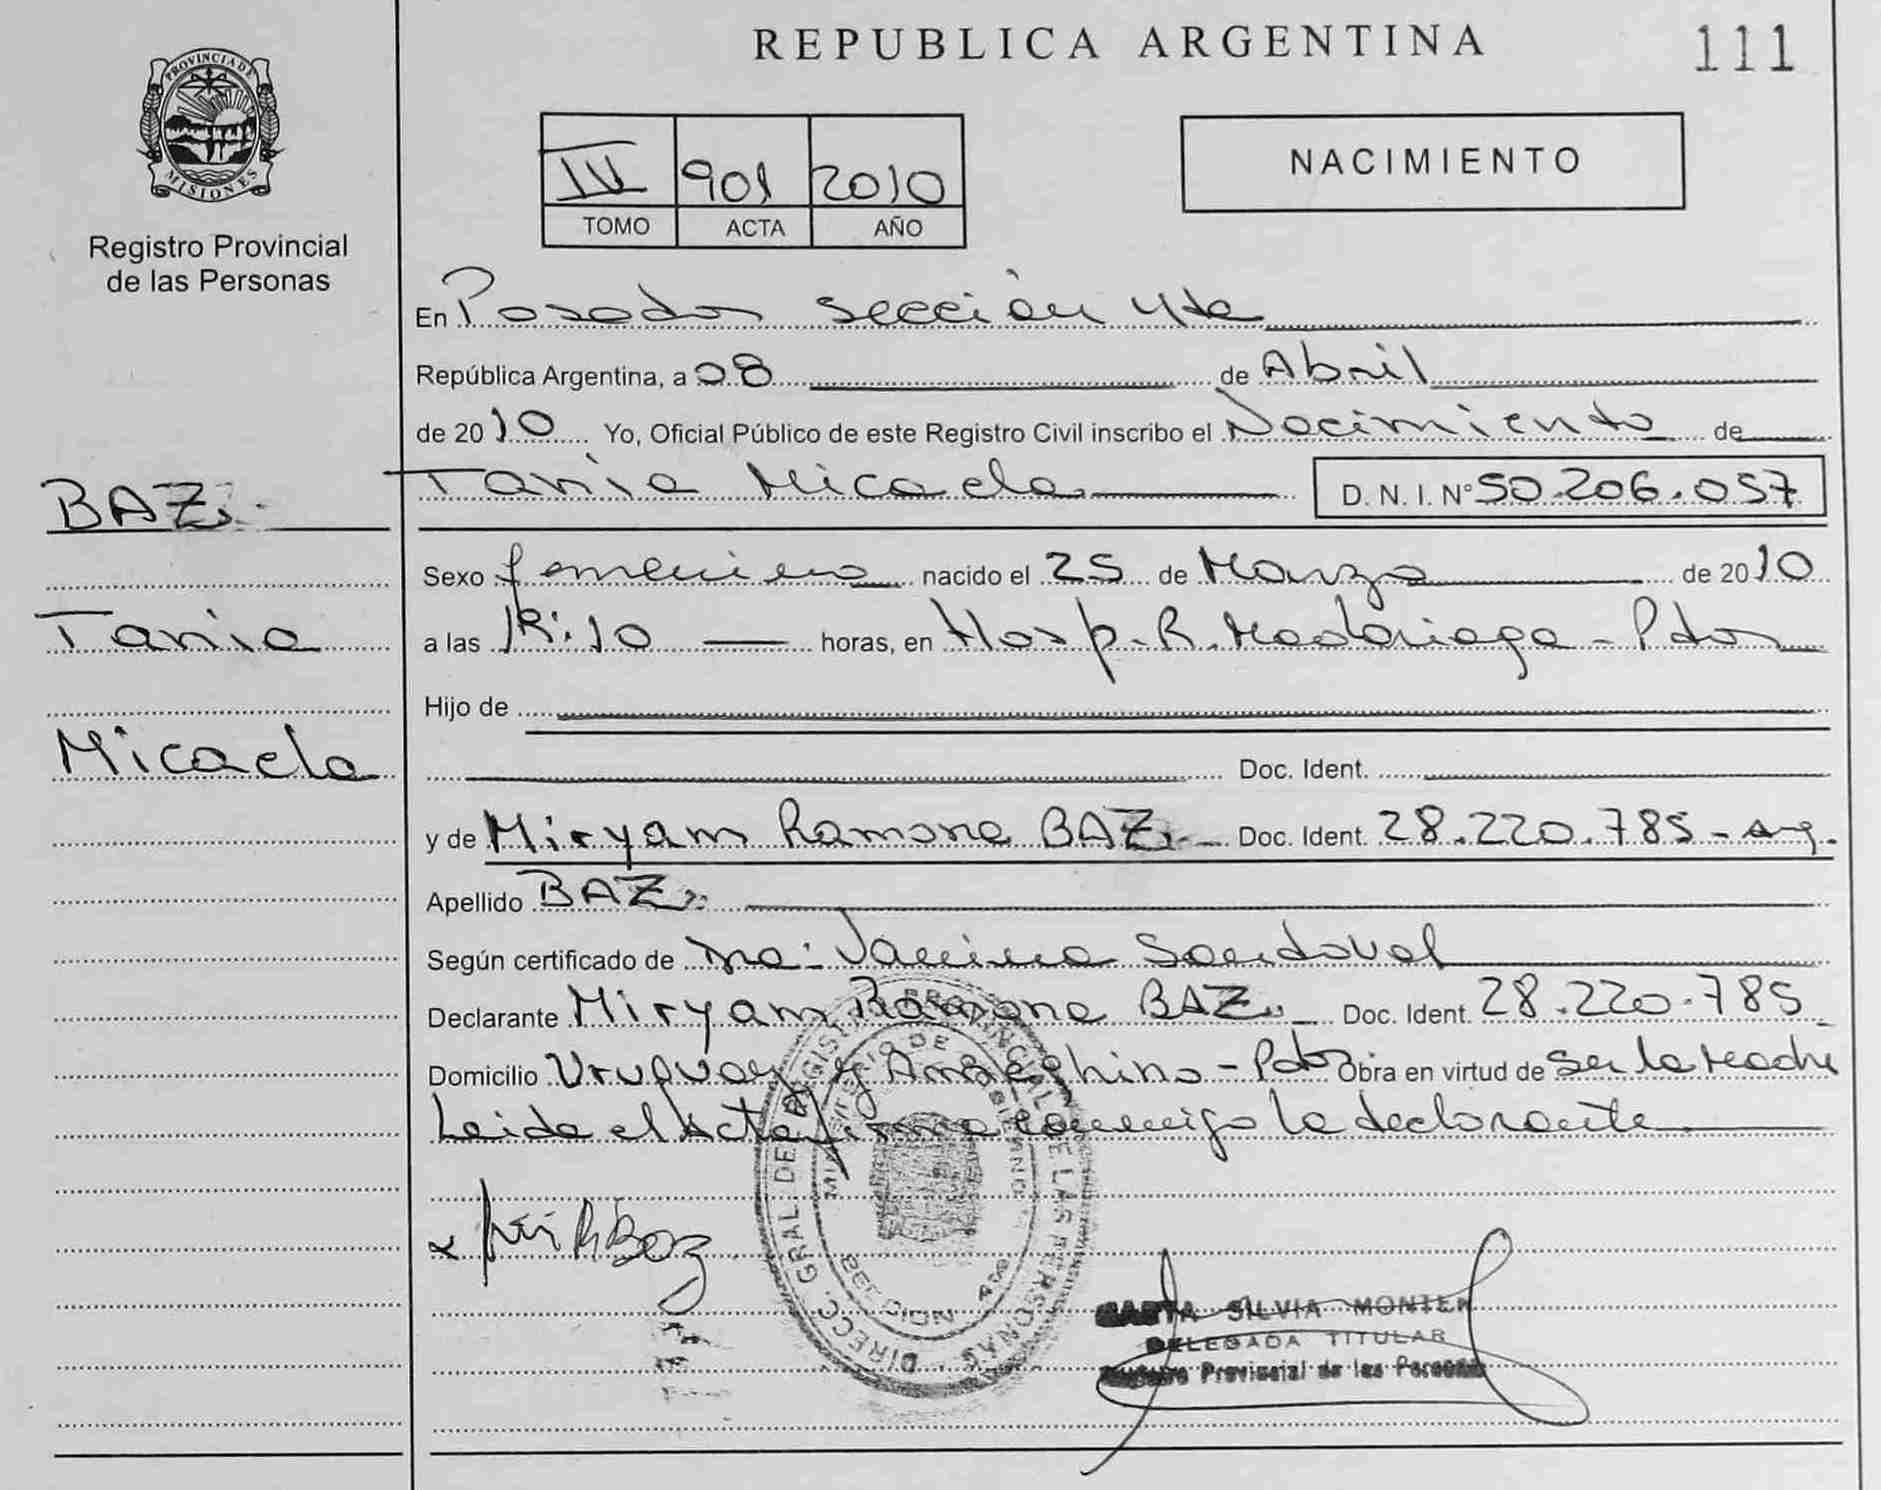 REPUBLICA ARGENTINA
111
PROVINCIA DE
MISIONES
Registro Provincial
de las Personas
901 2010
TOMO ACTA AÑO
NACIMIENTO
En Posadas sección 4ta
República Argentina, a 08 de Abril
de 2010 Yo, Oficial Público de este Registro Civil inscribo el Nacimiento de
BAZ Tania Micaela D. N. I. N° 50.206.057
Sexo femenino nacido el 25 de Marzo de 2010
Tania
a las horas, en Hosp. R. Madariaga - Pdas
Hijo de
Micaela
Doc. Ident.
y de Miryam Ramona BAZ Doc. Ident. 28.220.785 - arg.
Apellido BAZ
Según certificado de Sandoval
Declarante Miryam Ramona BAZ Doc. Ident. 28.220.785
Domicilio Uruguay y Ameghino - Pdas Obra en virtud de ser la Madre
Leida el Acta firma conmigo la declarante
DIRECC. GRAL. DEL REGISTRO PROVINCIAL DE LAS PERSONAS
MINISTERIO DE
SECCION 4ta
SILVIA MONTIEL
DELEGADA TITULAR
Registro Provincial de las Personas